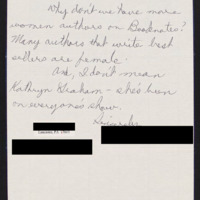 Why don't we have more
women authors on Booknotes?
Many authors that write best
sellers are female.
And, I don't mean
Kathryn Graham - she's been
on everyone's show.
Sincerely
Lancaster, PA